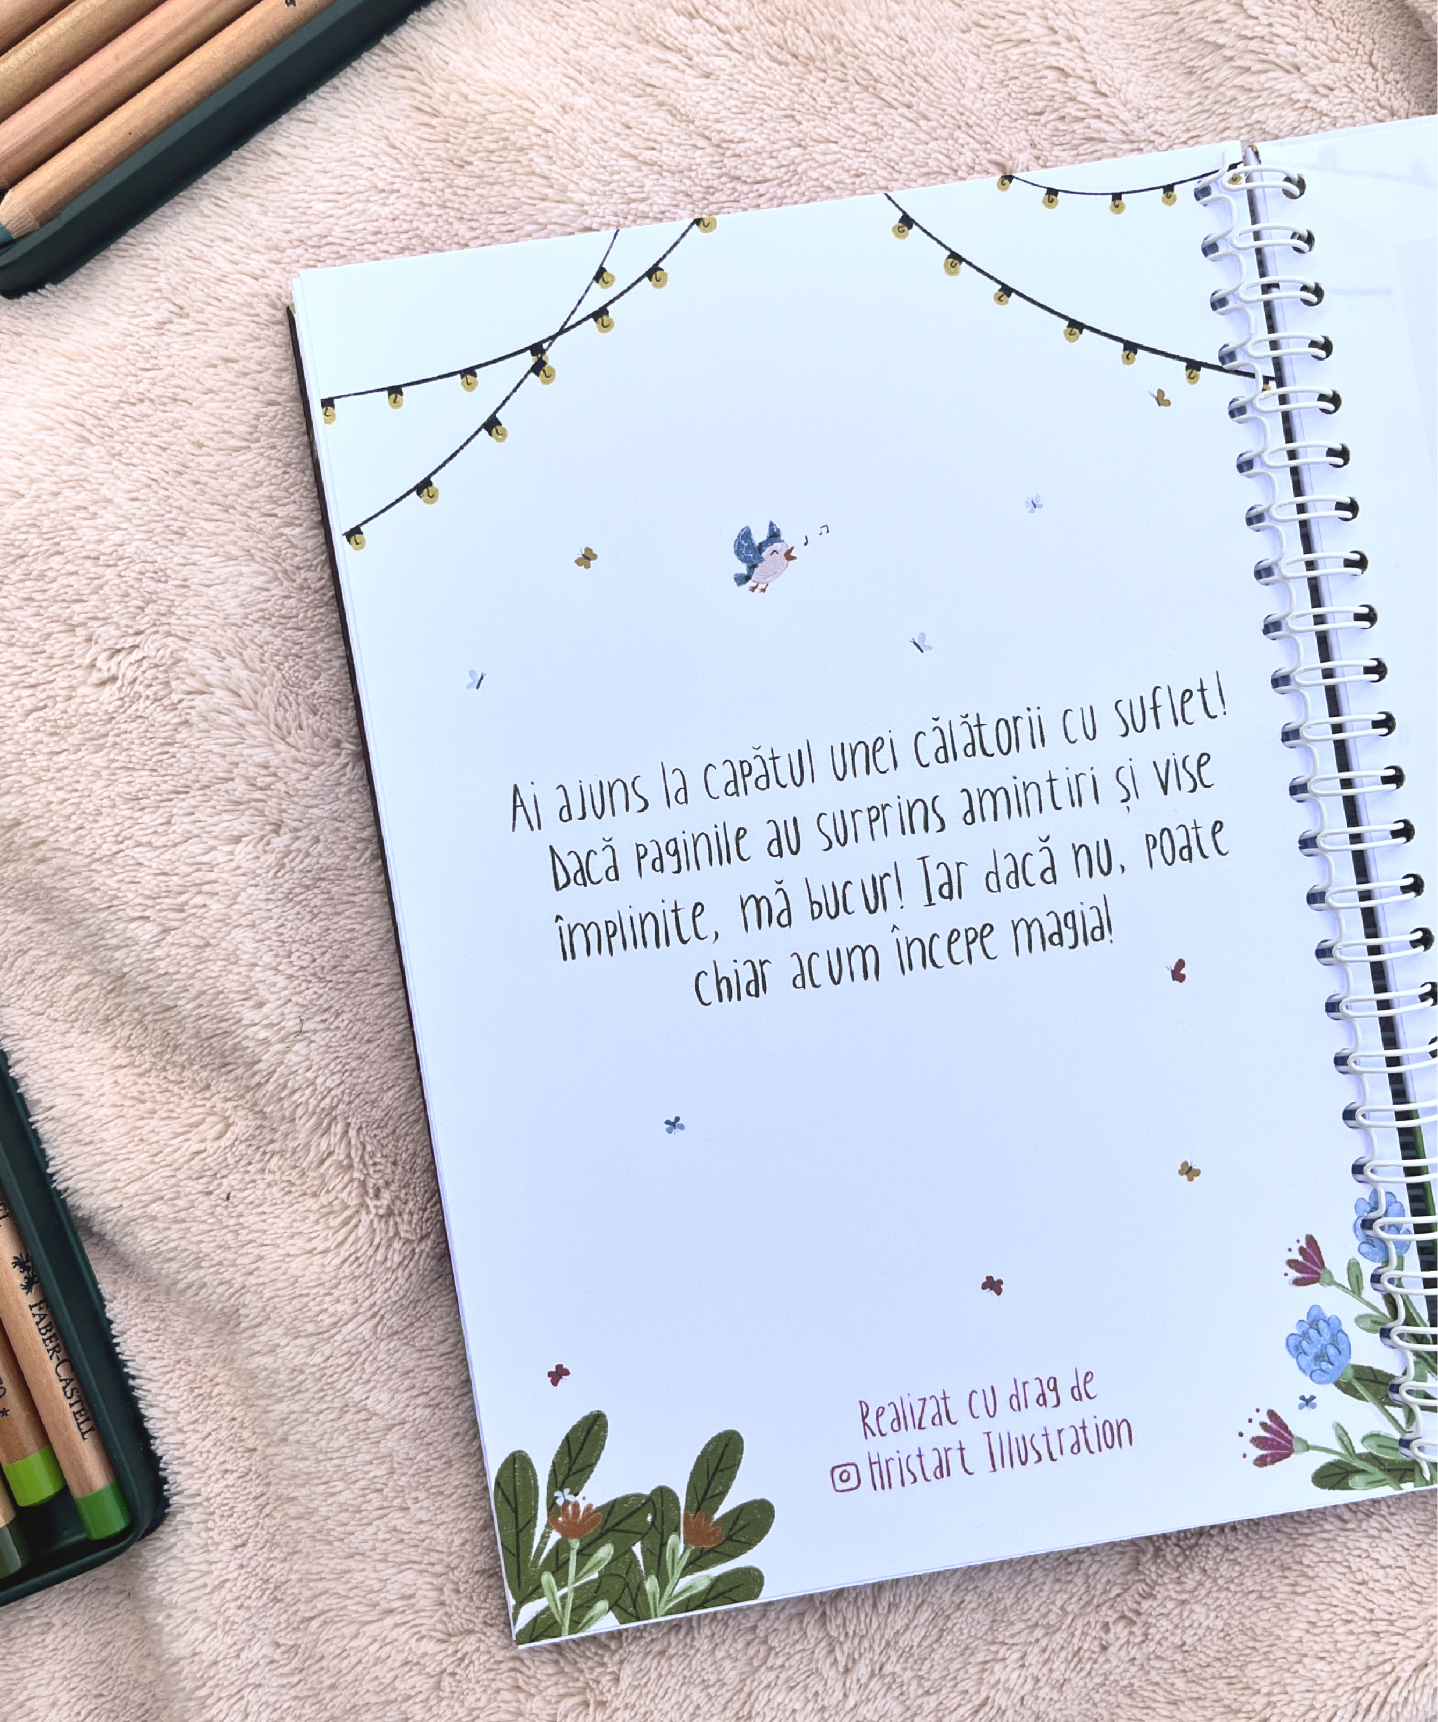 Ai ajuns la capătul unei călătorii cu suflet!
Dacă paginile au surprins amintiri și vise
împlinite, mă bucur! Iar dacă nu, poate
chiar acum începe magia!
Realizat cu drag de
Hristart Illustration
FABER-CASTELL